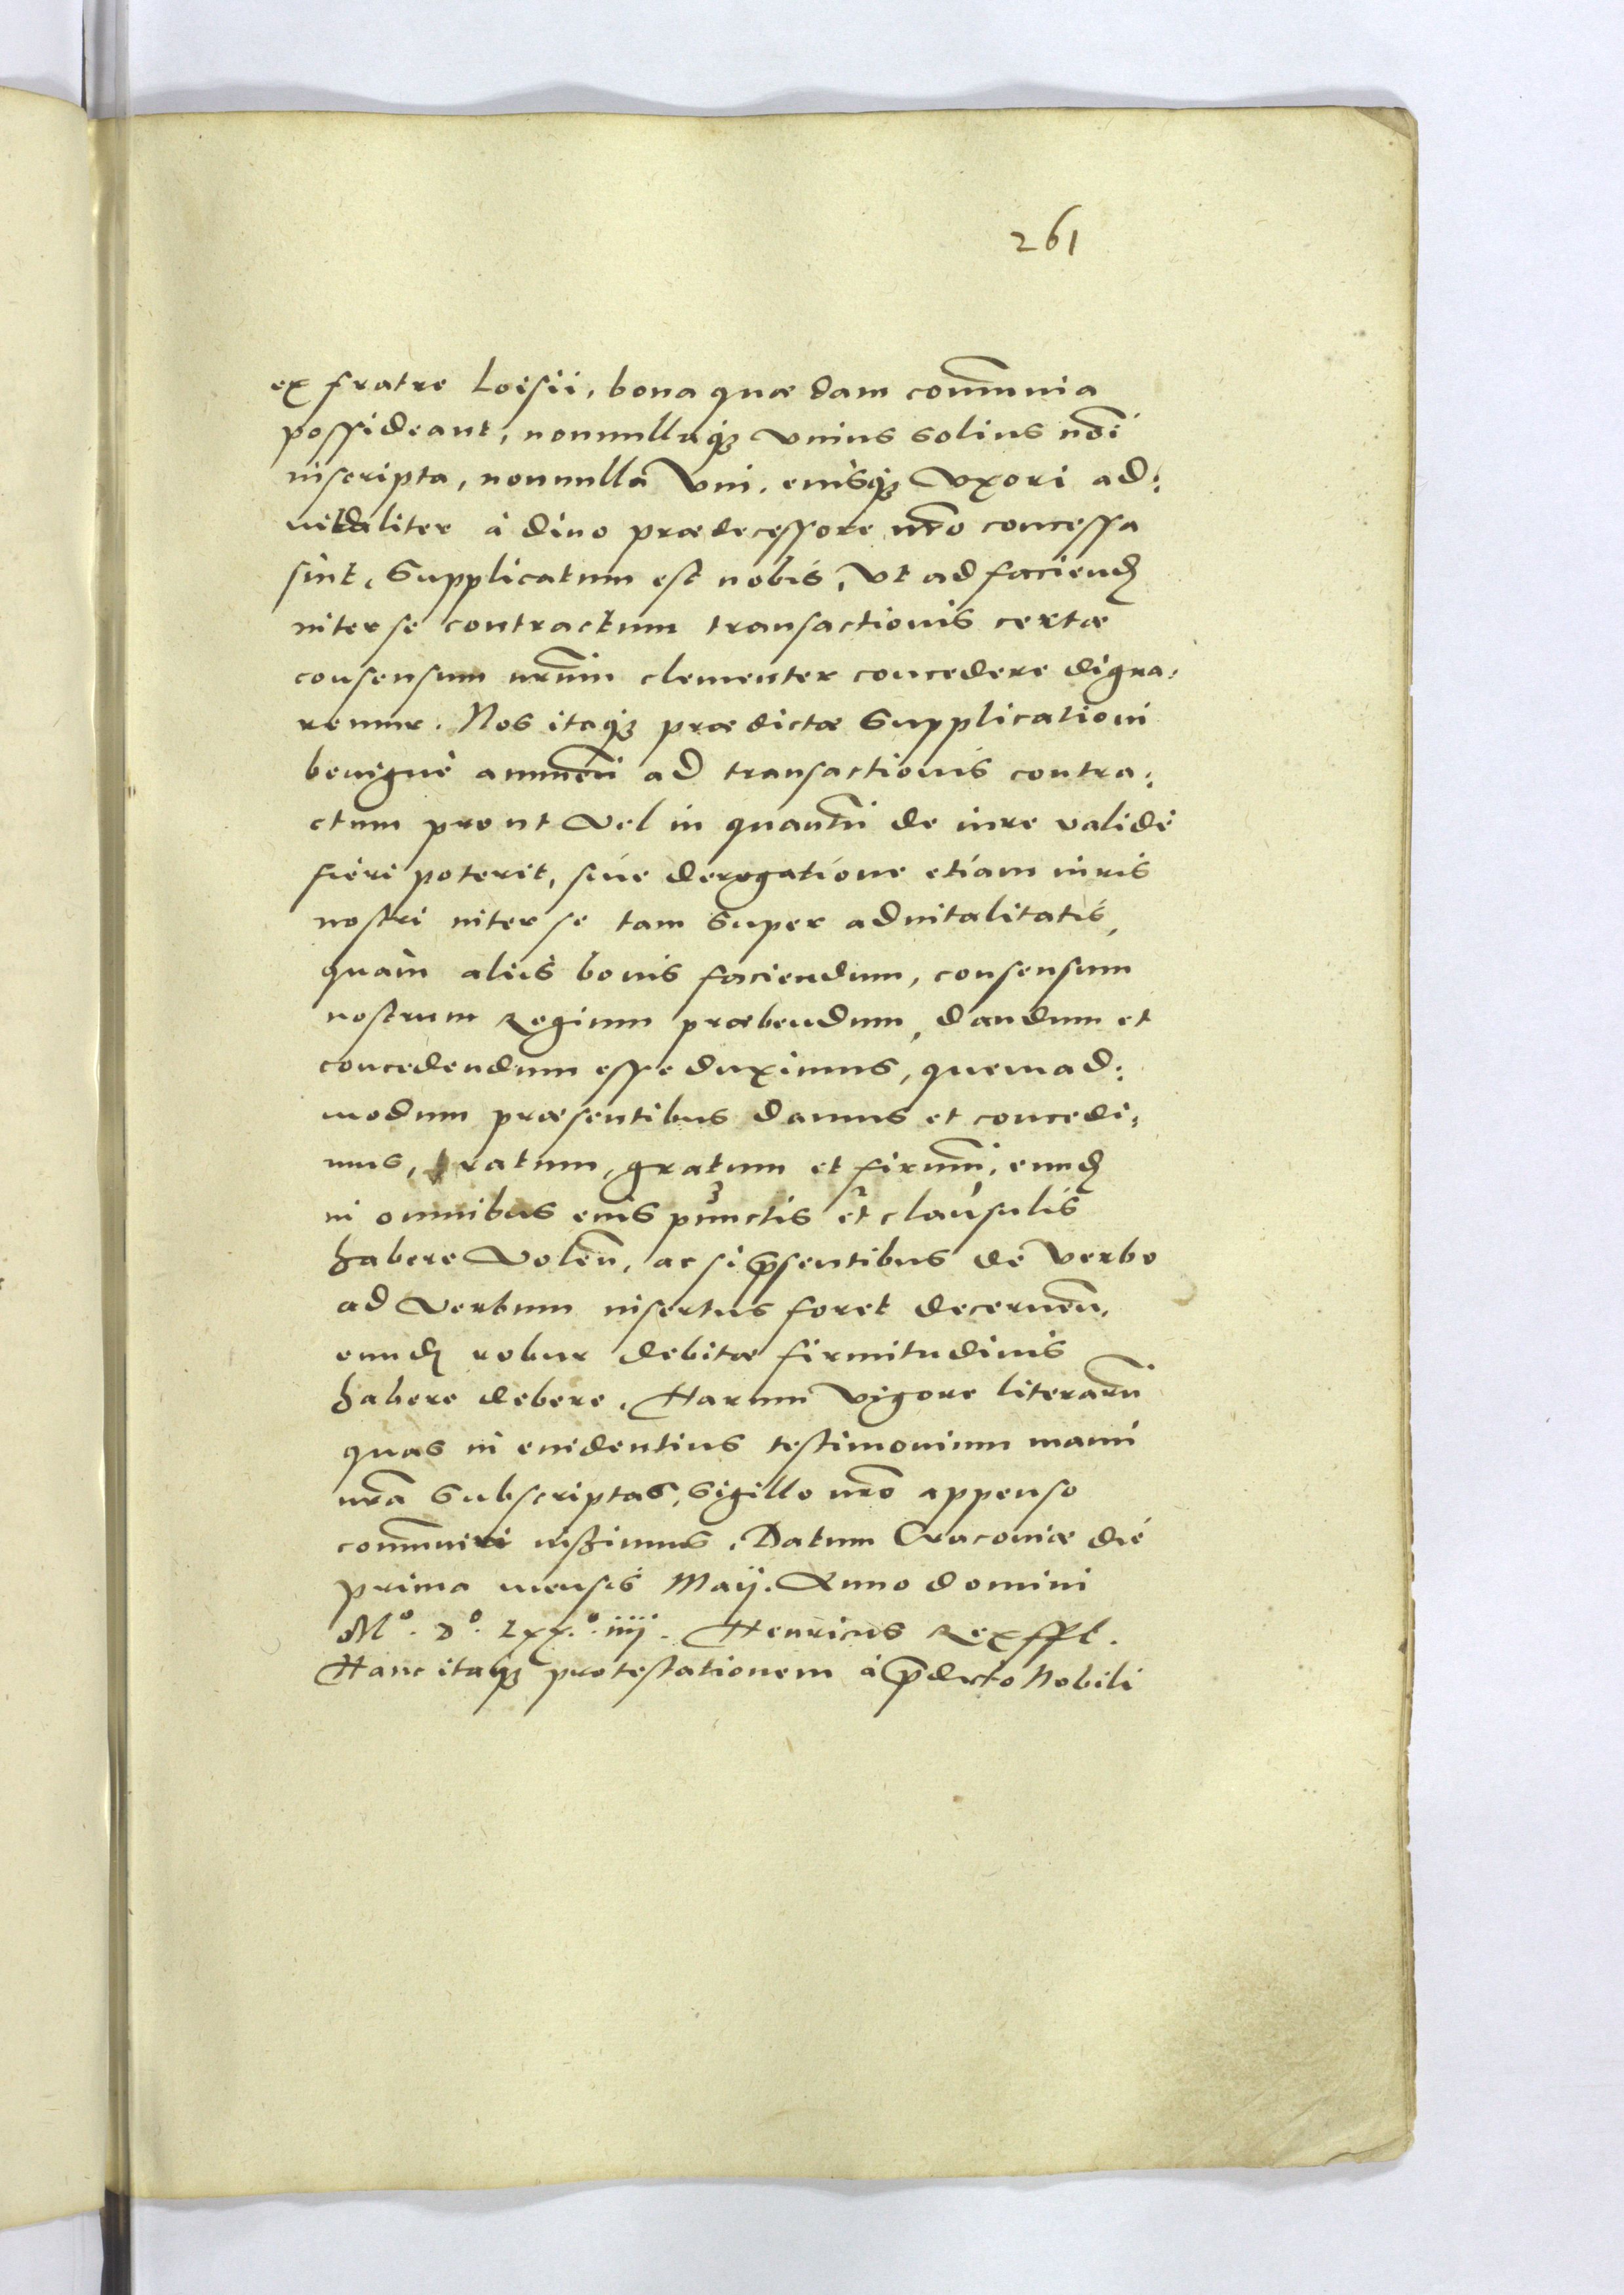 261
ex fratre Loisii, bona quædam com̄unia
possideant, nonnullaq₃ vnius solius nōi
inscripta, nonnulla Vni, eiusq₃ Vxori ad:
uitaliter à diuo prædecessore nr̄o concessa
sint, Supplicatum est nobis, Vt ad faciend
inter se contractum transactionis certæ
consensum nr̄um clementer concedere digna:
remur. Nos itaq₃ prædictæ Supplicationi
benignè annuen̄ ad transactionis contra:
ctum prout Vel in quantū de iure validè
fieri poterit, siue derogatione etiam iuris
nostri inter se tam Super aduitalitatis,
quàm aliis bonis faciendum, consensum
nostrum Regium præbendum, dandum et
concedendum esse duximus, quemad:
modum præsentibus damus et concedi:
mus, ratum, gratum et firmū, eund
in omnibus eius punctis et clausulis
habere Volen̄, ac si p̄sentibus de Verbo
ad Verbum insertus foret decernen̄,
eund robur debitæ firmitudinis
habere debere. Harum vigore literarū
quas in euidentius testimonium manu
nr̄a Subscriptas, Sigillo nr̄o appenso
com̄uniri iussimus. Datum Cracouiæ die
prima mensis Maij. Anno domini
Mº. Dº. Lxx.º iiij. Henricus Rex sspt.
Hanc itaq₃ protestationem à p̄dicto Nobili